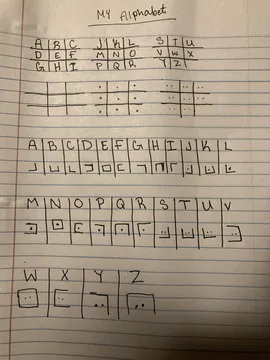 MY Alphabet
A B C J K L S T U
D E F M N O V W X
G H I P Q R Y Z
A B C D E F G H I J K L
M N O P Q R S T U V
W X Y Z